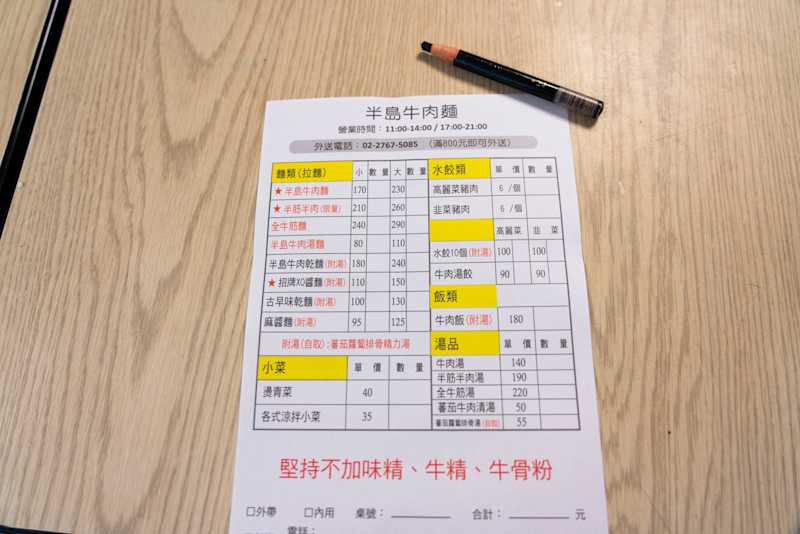 半島牛肉麵
營業時間：11:00-14:00 / 17:00-21:00
外送電話：02-2767-5085 （滿800元即可外送）
麵類(拉麵) 小 數量 大 數量
★半島牛肉麵 170 230
★半筋半肉(限量) 210 260
全牛筋麵 240 290
半島牛肉湯麵 80 110
半島牛肉乾麵(附湯) 180 240
★招牌XO醬麵(附湯) 110 150
古早味乾麵(附湯) 100 130
麻醬麵(附湯) 95 125
附湯(自取):蕃茄蘿蔔排骨精力湯
小菜 單價 數量
燙青菜 40
各式涼拌小菜 35
水餃類 單價 數量
高麗菜豬肉 6 /個
韭菜豬肉 6 /個
高麗菜 韭菜
水餃10個(附湯) 100 100
牛肉湯餃 90 90
飯類
牛肉飯(附湯) 180
湯品 單價 數量
牛肉湯 140
半筋半肉湯 190
全牛筋湯 220
蕃茄牛肉清湯 50
蕃茄蘿蔔排骨湯(自取) 55
堅持不加味精、牛精、牛骨粉
□外帶 □內用 桌號： 合計： 元
電話：